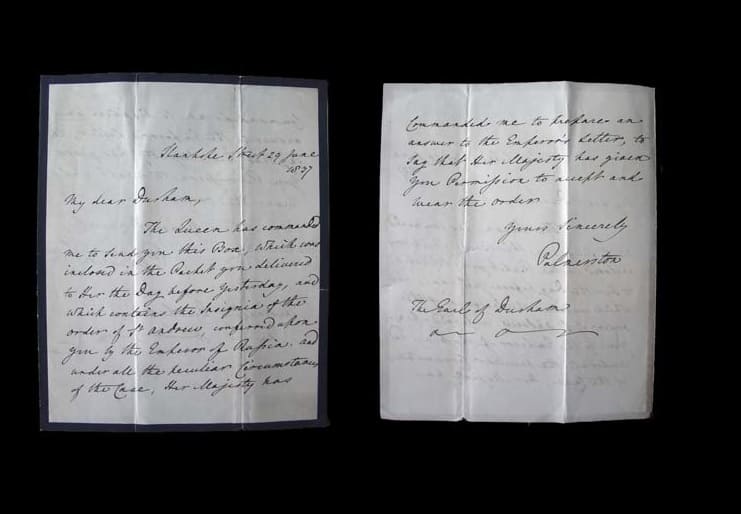 Stanhope Street 29 June
1837
My dear Durham,
The Queen has commanded
me to send you this Box, which was
inclosed in the Packet you delivered
to Her the Day before yesterday, and
which contains the Insignia of the
order of St Andrew, conferred upon
you by the Emperor of Russia. and
under all the peculiar Circumstances
of the Case, Her Majesty has
Commanded me to prepare an
answer to the Emperor's Letter, to
say that Her Majesty has given
you Permission to accept and
wear the order
Yours Sincerely
Palmerston
The Earl of Durham